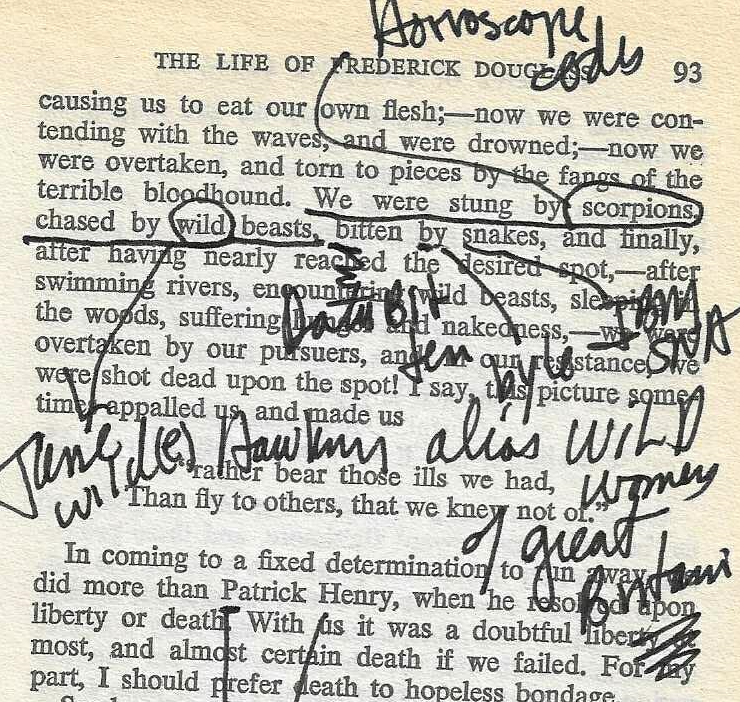 Horroscope
codes
THE LIFE OF FREDERICK DOUGLASS 93
causing us to eat our own flesh;—now we were con-
tending with the waves, and were drowned;—now we
were overtaken, and torn to pieces by the fangs of the
terrible bloodhound. We were stung by scorpions,
chased by wild beasts, bitten by snakes, and finally,
after having nearly reached the desired spot,—after
swimming rivers, encountering wild beasts, sleeping in
the woods, suffering hunger and nakedness,—we were
overtaken by our pursuers, and in our resistance, we
were shot dead upon the spot! I say, this picture some-
times appalled us, and made us
Data Bit
SNA
Hawking alias WILD
womens
of great
"rather bear those ills we had,
Than fly to others, that we knew not of."
In coming to a fixed determination to run away, we
did more than Patrick Henry, when he resolved upon
liberty or death. With us it was a doubtful liberty at
most, and almost certain death if we failed. For my
part, I should prefer death to hopeless bondage.